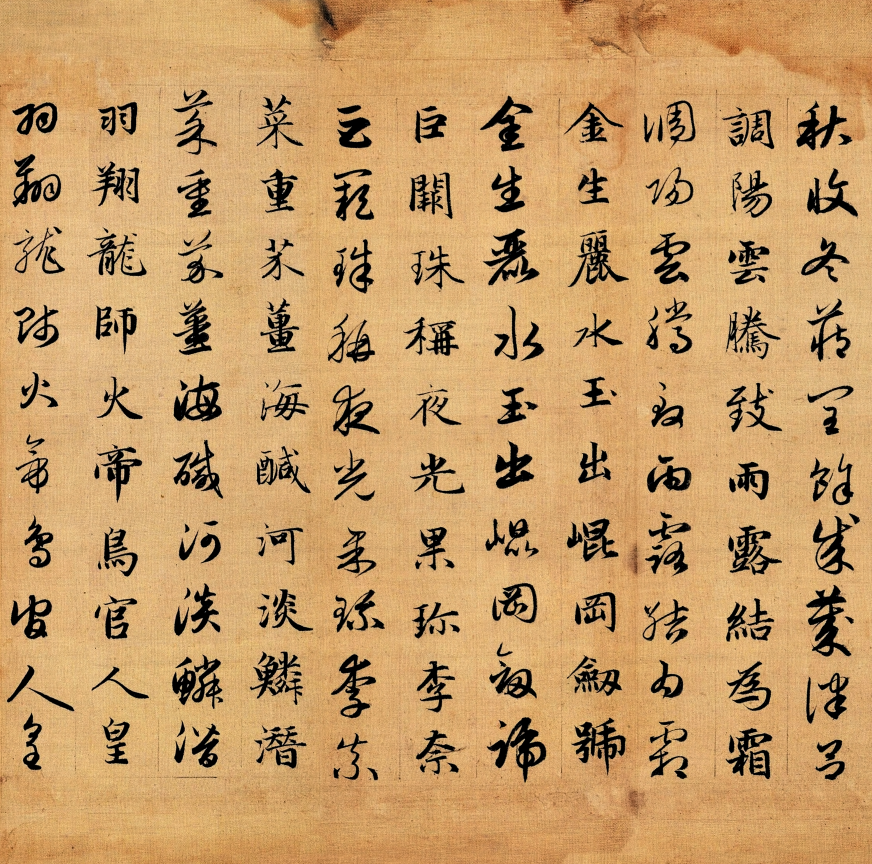 秋收冬藏閏餘成歲律呂
調陽雲騰致雨露結為霜
調陽雲騰致雨露結為霜
金生麗水玉出崐岡劔號
金生麗水玉出崐岡劔號
巨闕珠稱夜光果珎李奈
巨闕珠稱夜光果珎李奈
菜重芥薑海醎河淡鱗潛
菜重芥薑海醎河淡鱗潛
羽翔龍師火帝鳥官人皇
羽翔龍師火帝鳥官人皇